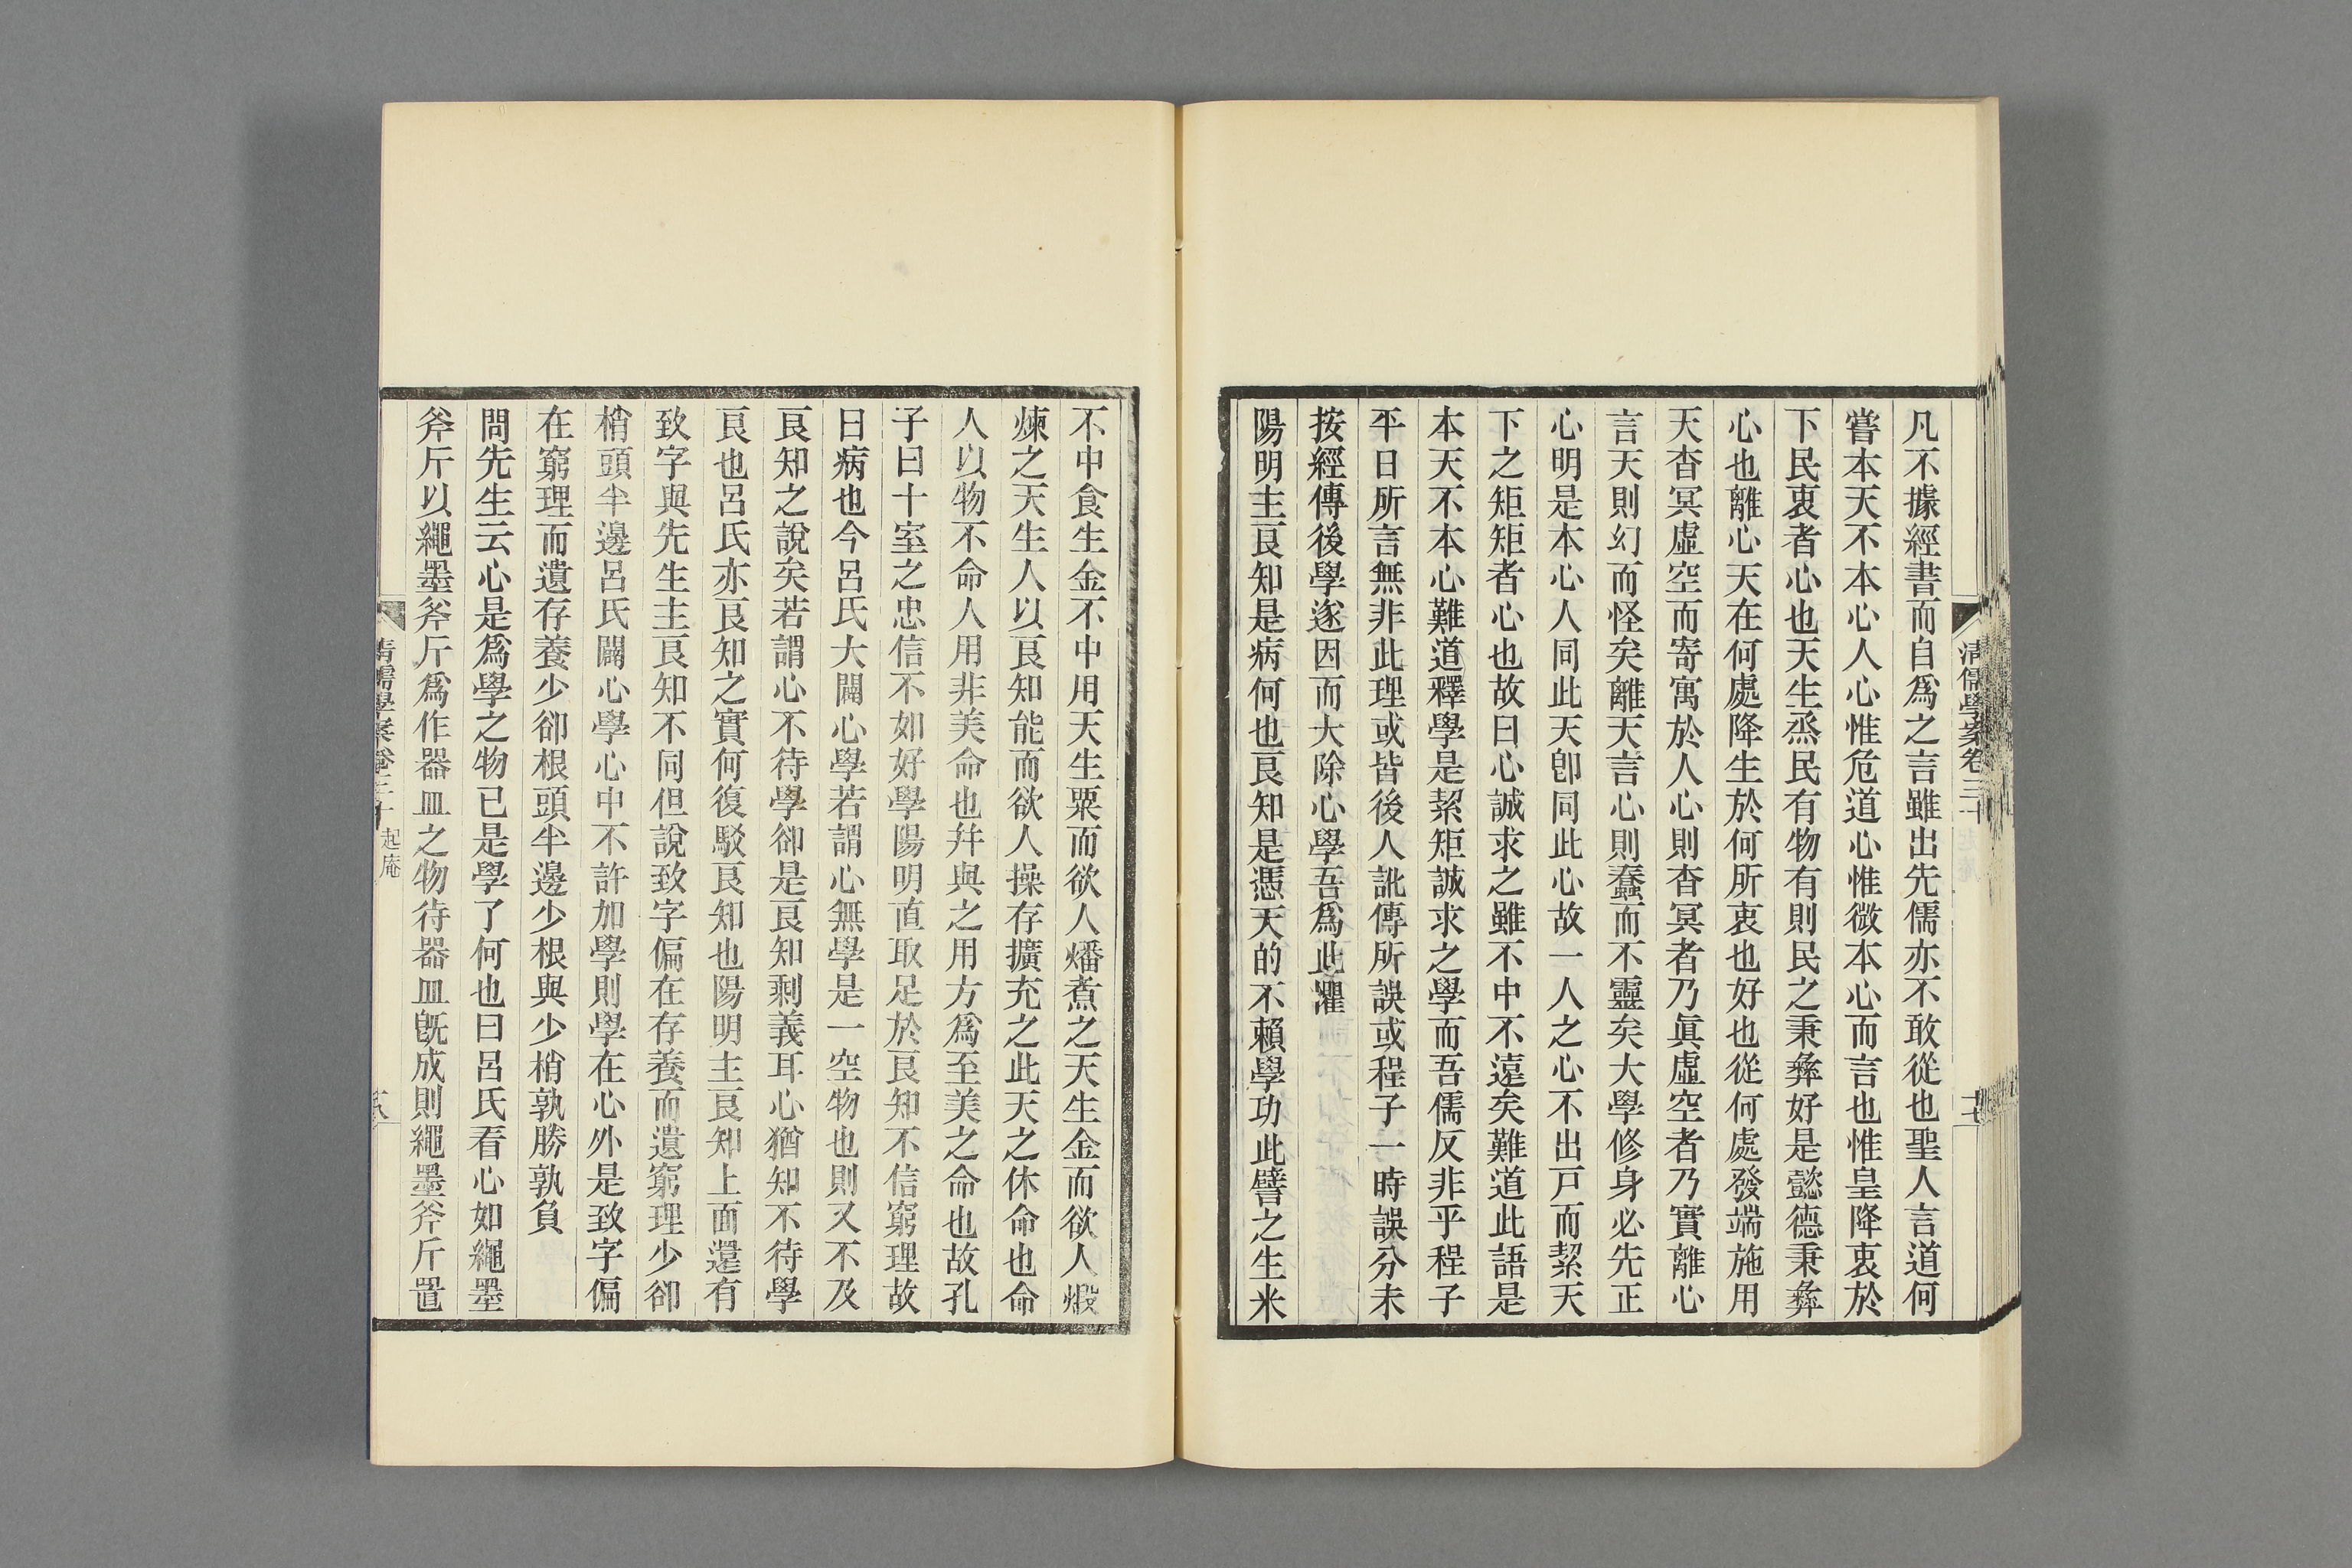 清儒學案卷三十
十七
凡不據經書而自爲之言雖出先儒亦不敢從也聖人言道何
嘗本天不本心人心惟危道心惟微本心而言也惟皇降衷於
下民衷者心也天生烝民有物有則民之秉彝好是懿德秉彝
心也離心天在何處降生於何所衷也好也從何處發端施用
天杳冥虛空而寄寓於人心則杳冥者乃眞虛空者乃實離心
言天則幻而怪矣離天言心則蠢而不靈矣大學修身必先正
心明是本心人同此天卽同此心故一人之心不出戸而絜天
下之矩矩者心也故曰心誠求之雖不中不遠矣難道此語是
本天不本心難道釋學是絜矩誠求之學而吾儒反非乎程子
平日所言無非此理或皆後人訛傳所誤或程子一時誤分未
按經傳後學遂因而大除心學吾爲此懼
陽明主良知是病何也良知是憑天的不賴學功此譬之生米
不中食生金不中用天生粟而欲人燔煮之天生金而欲人煅
煉之天生人以良知能而欲人操存擴充之此天之休命也命
人以物不命人用非美命也幷與之用方爲至美之命也故孔
子曰十室之忠信不如好學陽明直取足於良知不信窮理故
曰病也今呂氏大闢心學若謂心無學是一空物也則又不及
良知之說矣若謂心不待學卻是良知剩義耳心猶知不待學
良也呂氏亦良知之實何復駁良知也陽明主良知上面還有
致字與先生主良知不同但說致字偏在存養而遺窮理少卻
梢頭半邊呂氏闢心學心中不許加學則學在心外是致字偏
在窮理而遺存養少卻根頭半邊少根與少梢孰勝孰負
問先生云心是爲學之物已是學了何也曰呂氏看心如繩墨
斧斤以繩墨斧斤爲作器皿之物待器皿旣成則繩墨斧斤置
清儒學案卷三十 起庵
十八